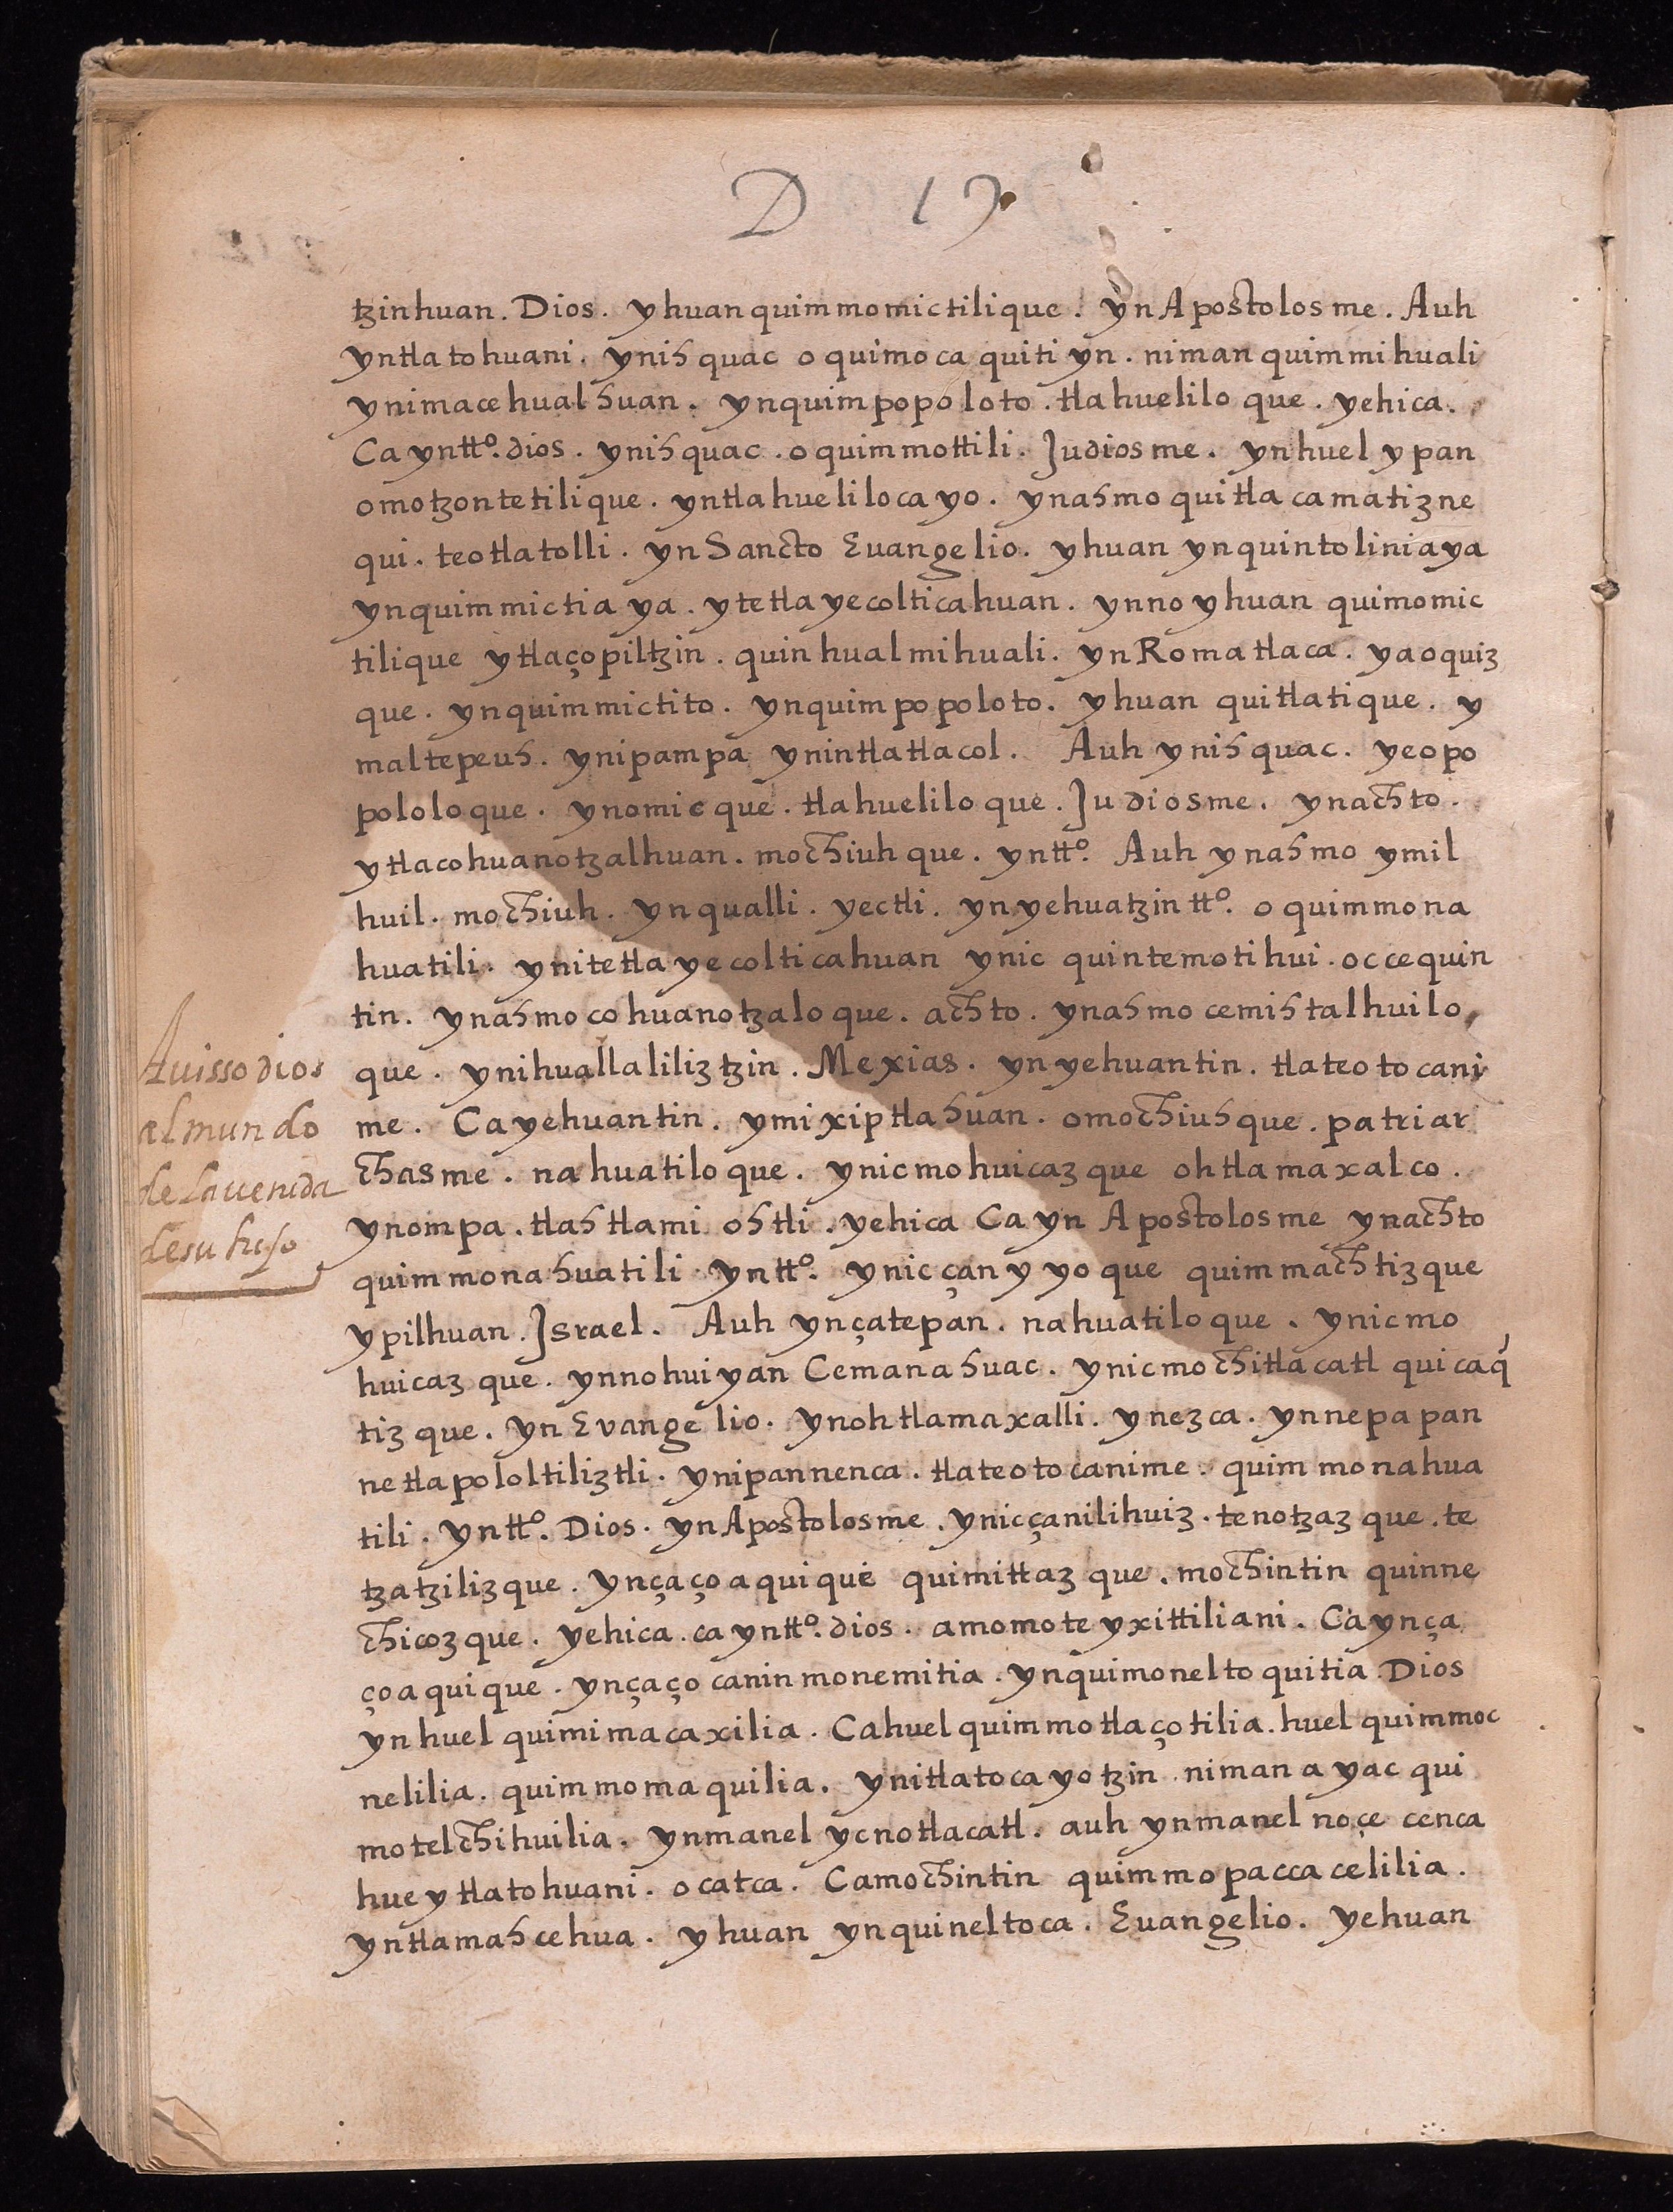 D 19
tzinhuan. Dios. yhuan quimmomictilique. yn Apostolosme. Auh
yntlatohuani. ynihquac oquimocaquiti yn. niman quimmihuali
ynimacehualhuan. ynquimpopoloto. tlahueliloque. yehica.
Ca yntto. dios. ynihquac. oquimmottili. Judiosme. ynhuel ypan
omotzontetilique. yntlahuelilocayo. ynahmo quitlacamatizne
qui. teotlatolli. yn Sancto Euangelio. yhuan ynquintoliniaya
ynquimmictiaya. ytetlayecolticahuan. ynno yhuan quimomic
tilique ytlaçopiltzin. quinhualmihuali. yn Roma tlaca. yaoquiz
que. ynquimmictito. ynquimpopoloto. yhuan quitlatique. y
maltepeuh. ynipampa ynintlatlacol. Auh ynihquac. yeopo
pololoque. ynomicque. tlahueliloque. Judiosme. ynachto.
ytlacohuanotzalhuan. mochiuhque. yntto. Auh ynahmo ymil
huil. mochiuh. ynqualli. yectli. ynyehuatzin tto. oquimmona
huatili. ynitetlayecolticahuan ynic quintemotihui. occequin
tin. ynahmo cohuanotzaloque. achto. ynahmo cemihtalhuilo
que. ynihuallaliliztzin. Mexias. ynyehuantin. tlateotocani
me. Ca yehuantin. ymixiptlahuan. omochiuhque. patriar
chasme. nahuatiloque. ynicmohuicazque ohtlamaxalco.
ynompa. tlahtlami ohtli. yehica Ca yn Apostolosme ynachto
quimmonahuatili yntto. ynic çanyyoque quimmachtizque
ypilhuan. Israel. Auh ynçatepan. nahuatiloque. ynicmo
huicazque. ynnohuiyan Cemanahuac. ynicmochitlacatl quicaq́
tizque. yn Evangelio. ynohtlamaxalli. ynezca. ynnepapan
netlapololtiliztli. ynipannenca. tlateotocanime. quimmonahua
tili. yntto. Dios. yn Apostolosme. ynicçanilihuiz. tenotzazque. te
tzatzilizque. ynçaçoaquique quimittazque. mochintin quinne
chicozque. yehica. ca yntto. dios. amomoteyxittiliani. Ca ynça
çoaquique. ynçaço canin monemitia. ynquimoneltoquitia Dios
ynhuel quimimacaxilia. Cahuel quimmotlaçotilia. huel quimmoc
nelilia. quimmomaquilia. ynitlatocayotzin niman ayac qui
motelchihuilia. ynmanel ycnotlacatl. auh ynmanel noçe cenca
huey tlatohuani. ocatca. Camochintin quimmopaccacelilia.
yntlamahcehua. yhuan ynquineltoca. Euangelio. yehuan
Auisso dios
al mundo
de la uenida
de su hijo